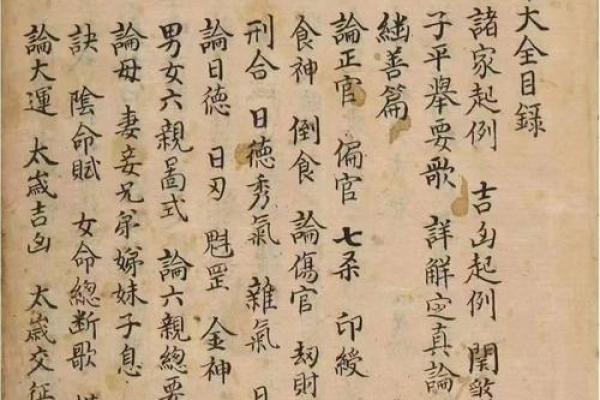 大全目録
諸家起例 吉凶起例 関煞
子平舉要歌 詳解定真論
継善篇
論正官 偏官 七杀 印綬
食神 倒食 論傷官 刼財
刑合 日徳秀氣 雜氣 日
論日徳 日刃 魁罡 金神
男女六親圖式 論六親總要
論母 妻妾兄弟娣妹子息
訣 陰命賦 女命總断歌
論大運 太嵗吉凶 太嵗交征